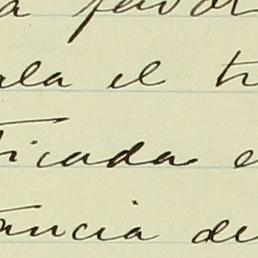 a favor
ala el tr
ficada e
ancia de